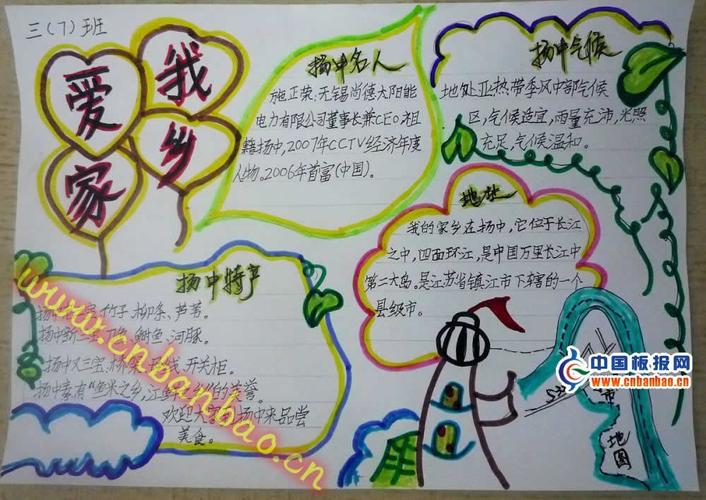 三(7)班
爱我
家乡
扬中名人
施正荣:无锡尚德太阳能
电力有限公司董事长兼CEO。祖
籍扬中,2007年CCTV经济年度
人物。2006年首富(中国)。
扬中气候
地处亚热带季风中部气候
区,气候适宜,雨量充沛,光照
充足,气候温和。
地址
我的家乡在扬中,它位于长江
之中,四面环江,是中国万里长江中
第二大岛。是江苏省镇江市下辖的一个
县级市。
扬中特产
竹子、柳条、芦苇。
鲥鱼、河豚。
扬中又三宝: 开关柜。
扬中素有“鱼米之乡,江
欢迎 扬中来品尝
美食。
市
地图
中国板报网
www.cnbanbao.cn
www.cnbanbao.cn